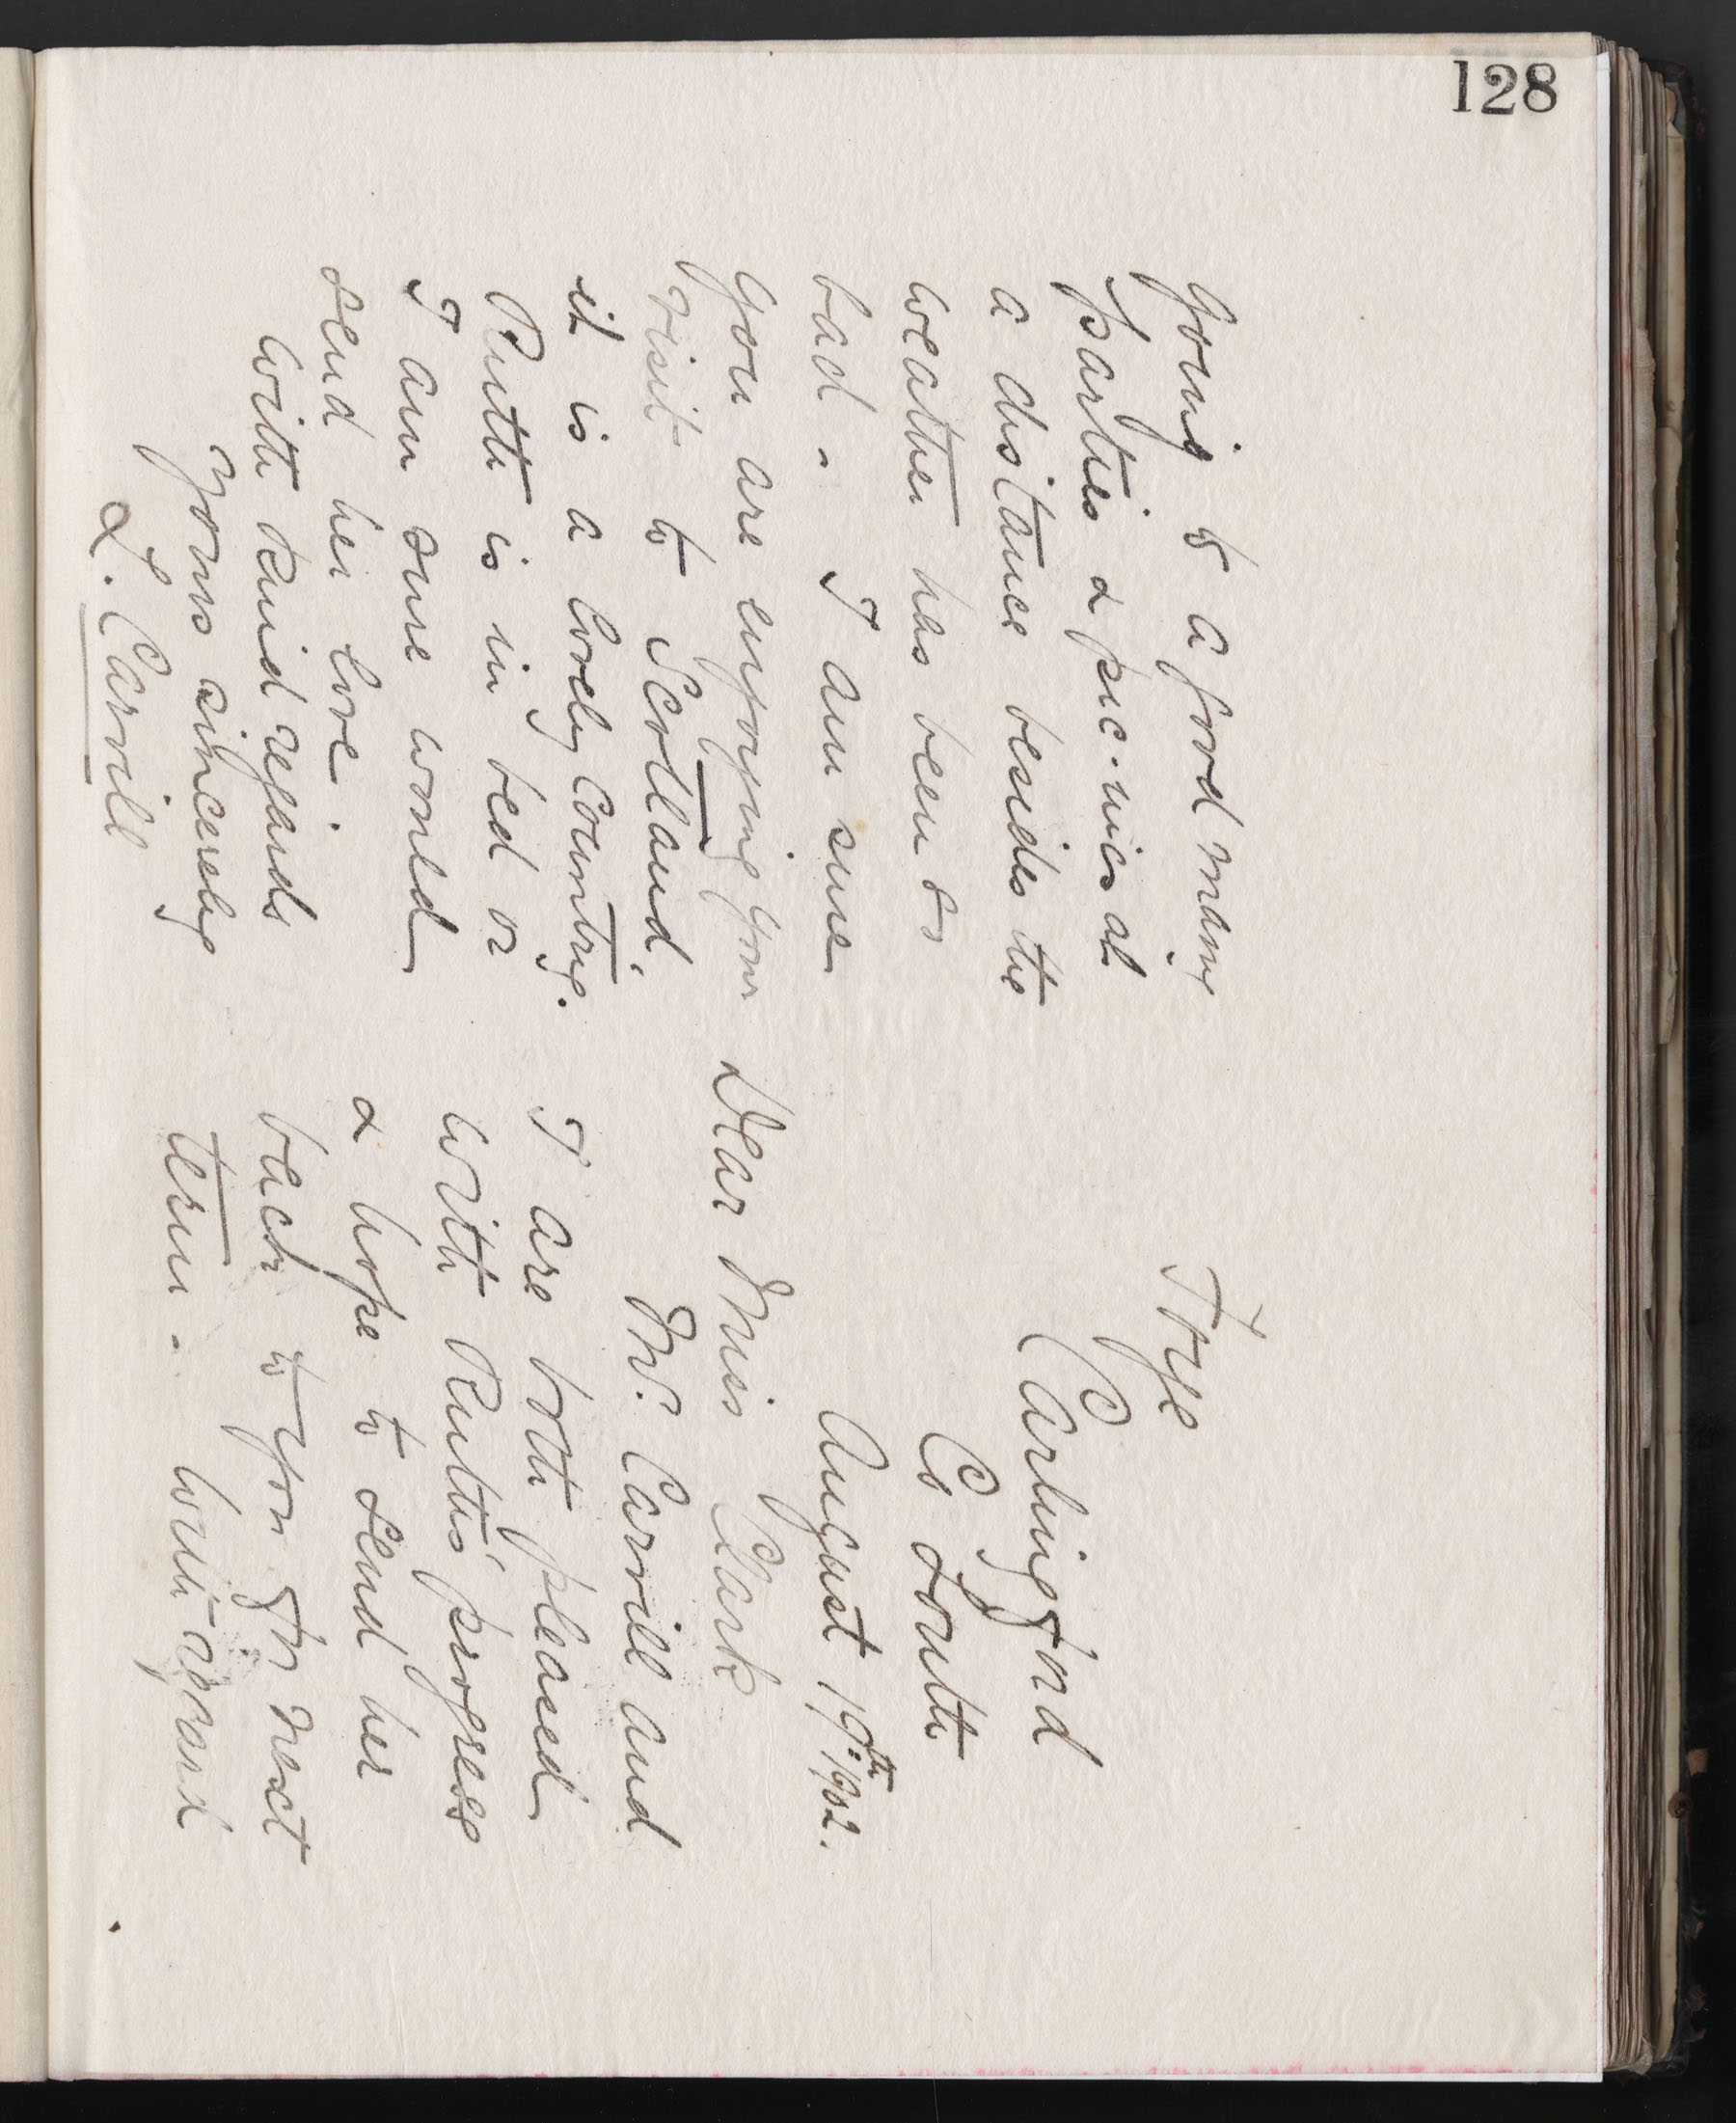 128
going to a good many
parties & pic-nics at
a distance besides the
weather has been so
bad. I am sure
you are enjoying your
visit to Scotland,
it is a lovely country.
Ruth is in bed or
I am sure would
send her love.
With kind regards
Yours sincerely
L. Carvill
Carlingford
Co Louth
August 19th 1902.
Dear Miss Clark
Mr. Carvill and
I are both pleased
with Ruth's progress
& hope to send her
back to you for next
term. With regard